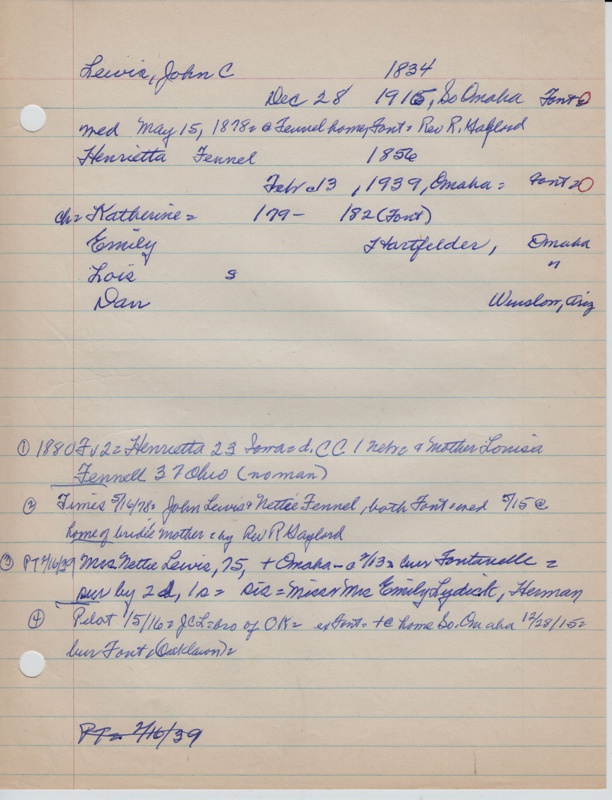 Lewis, John C 1834
Dec 28 1915, So Omaha Font
med May 15, 1878 = @ Fennel home, Font = Rev R. Gaylord
Henrietta Fennel 1856
Febr 13, 1939, Omaha = Font =
ch = Katherine = 179- 182 (Font)
Emily Hartfelder, Omaha
Lois s "
Dan Winslow, Ariz
① 1880 Henrietta 23 Iowa = d. CC 1 Nebr & Mother Louisa
Fennell 37 Ohio (no man)
② Times 5/16/78 = John Lewis & Nettie Fennel, both Font = med 5/15 @
home of bride mother = by Rev R Gaylord
③ PT 2/16/39 Mrs Nettie Lewis, 75, + Omaha - 2/13 = bur Fontanelle =
sur by 2d, 1s = sis = Mrs Emily Lydick, Herman
④ Pilot 1/5/16 = JCL = bro of OK = ex Font = + @ home So. Omaha 12/28/15 =
bur Font, (Oaklawn) =
PT = 2/16/39